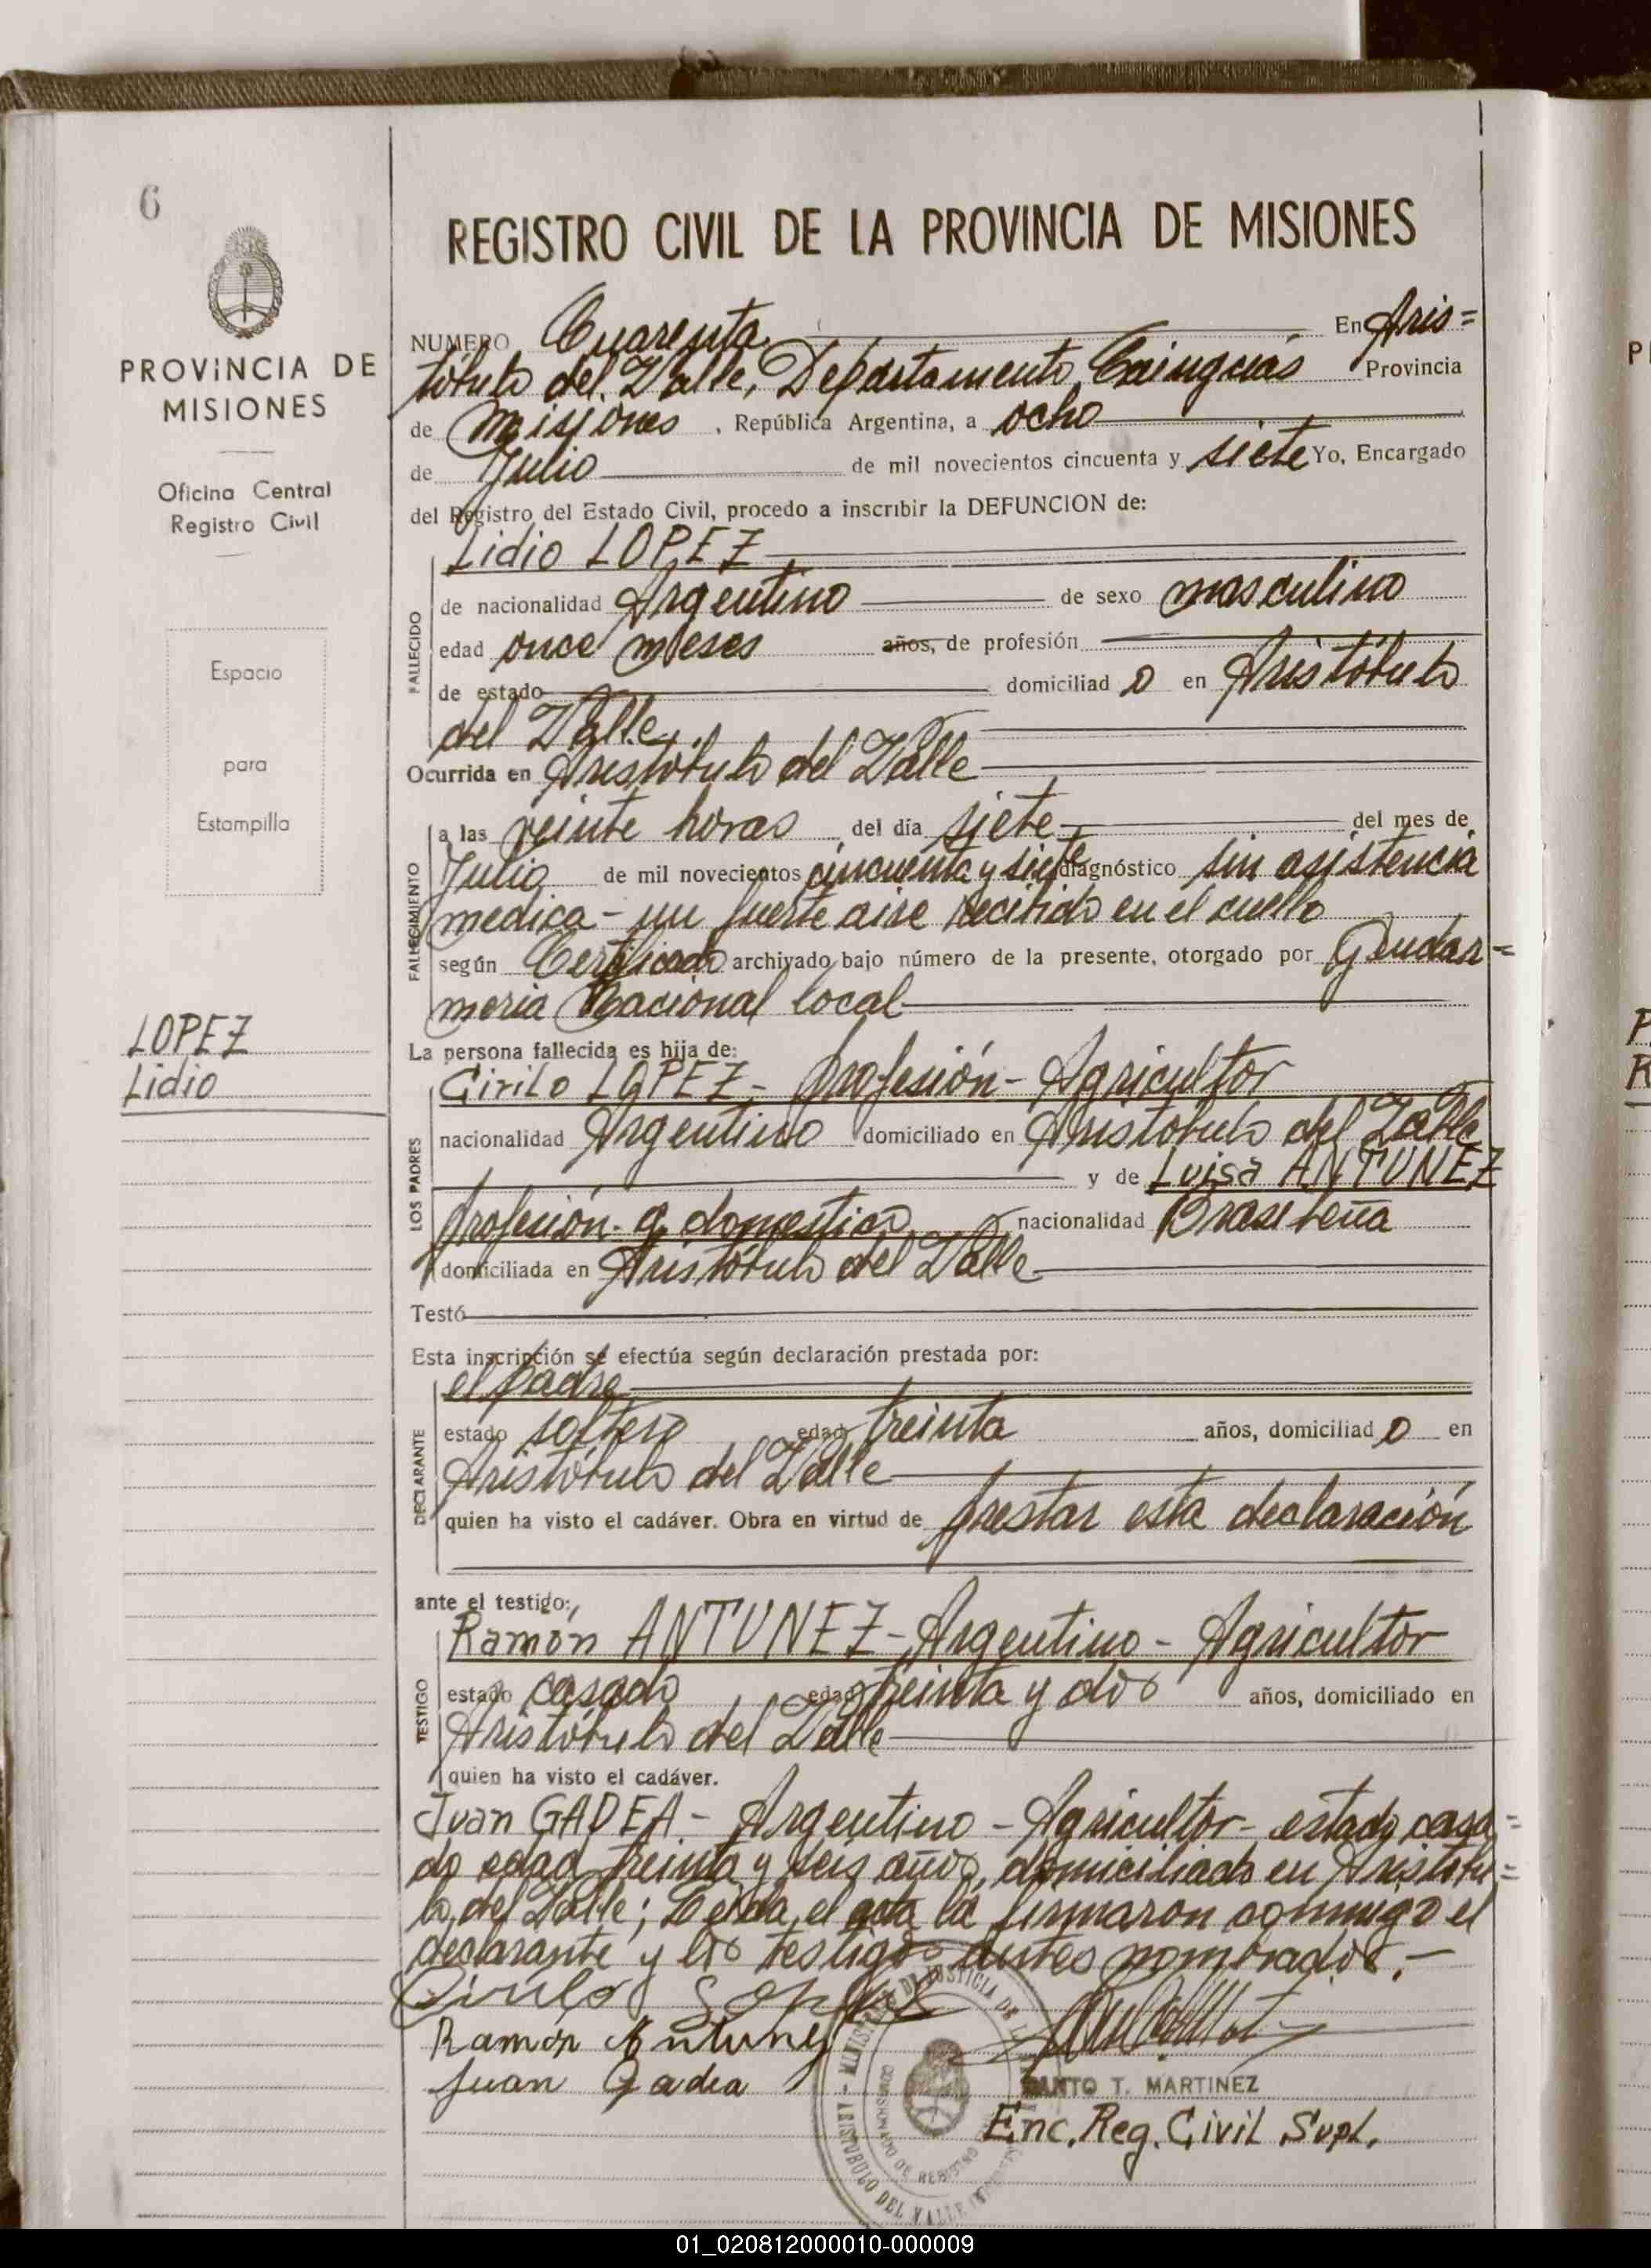 6
PROVINCIA DE
MISIONES
Oficina Central
Registro Civil
Espacio
para
Estampilla
LOPEZ
Lidio
REGISTRO CIVIL DE LA PROVINCIA DE MISIONES
NUMERO Cuarenta En Aris=
tóbulo del Valle, Departamento Cainguás Provincia
de Misiones, República Argentina, a ocho
de Julio de mil novecientos cincuenta y siete Yo, Encargado
del Registro del Estado Civil, procedo a inscribir la DEFUNCION de:
Lidio LOPEZ
FALLECIDO
de nacionalidad Argentino de sexo masculino
edad once meses años, de profesión
de estado domiciliad o en Aristóbulo
del Valle
Ocurrida en Aristóbulo del Valle
FALLECIMIENTO
a las veinte horas del día siete del mes de
Julio de mil novecientos cincuenta y siete diagnóstico sin asistencia
medica - un fuerte aire recibido en el cuello
según Certificado archivado bajo número de la presente, otorgado por Gendar=
meria Nacional local
La persona fallecida es hija de:
LOS PADRES
Cirilo LOPEZ - profesión - Agricultor
nacionalidad Argentino domiciliado en Aristobulo del Valle
y de Luisa ANTUNEZ
profesión - q. domestico nacionalidad Brasileña
domiciliada en Aristóbulo del Valle
Testó
Esta inscripción se efectúa según declaración prestada por:
DECLARANTE
el padre
estado soltero edad treinta años, domiciliad o en
Aristóbulo del Valle
quien ha visto el cadáver. Obra en virtud de prestar esta declaración
ante el testigo:
TESTIGO
Ramón ANTUNEZ - Argentino - Agricultor
estado casado edad treinta y dos años, domiciliado en
Aristóbulo del Valle
quien ha visto el cadáver.
Juan GADEA - Argentino - Agricultor - estado casa=
do edad treinta y seis años, domiciliado en Aristobu=
lo del Valle; Leida el acta la firmaron conmigo el
declarante y los testigos antes nombrados.-
Cirilo Lopez
Ramón Antunez
Juan Gadea
SANTO T. MARTINEZ
Enc. Reg. Civil Supl.
MINISTERIO DE JUSTICIA DE
ARISTOBULO DEL VALLE
DE REGISTRO
01_020812000010-000009